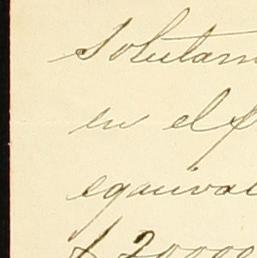 solutam
en el f
equival
$ 20000